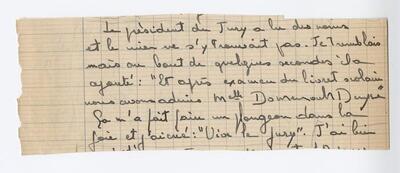 Le président du Jury a lu des noms
et le mien ne s'y trouvait pas. Je tremblais
mais au bout de quelques secondes il a
ajouté : "Et après examen du livret scolaire
nous avons admis Melle
Ça m'a fait faire un plongeon dans la
joie et j'ai crié : "Vive le Jury". J'ai bien